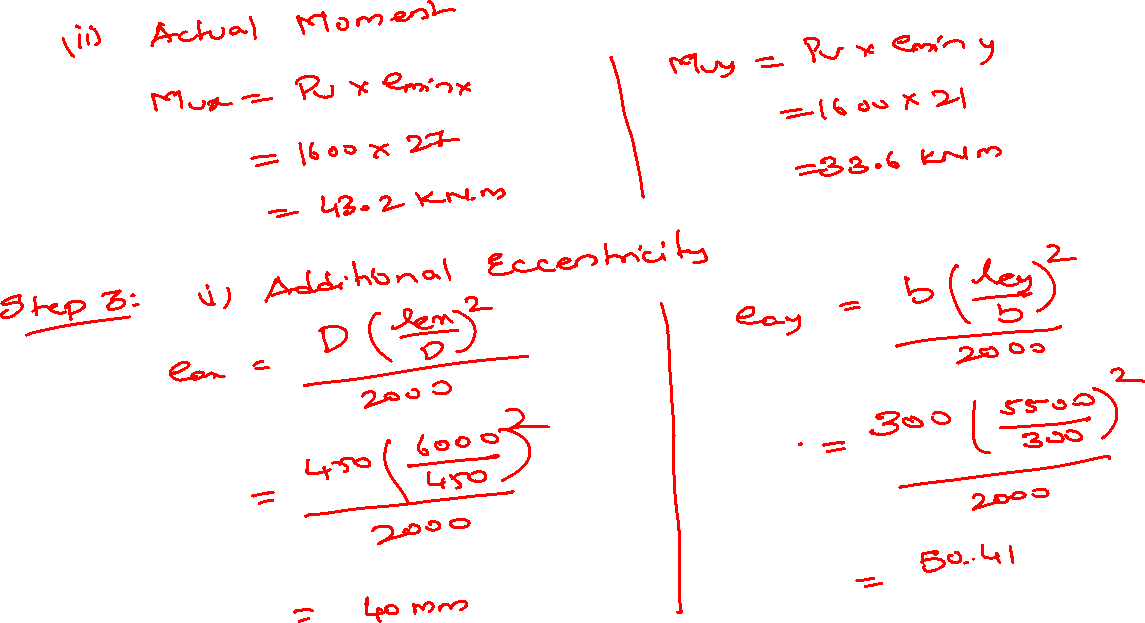 (ii) Actual Moment
Mux = Pu x eminx
= 1600 x 27
= 43.2 KN.m
Muy = Pu x eminy
= 1600 x 21
= 33.6 KNm
Step 3: i) Additional Eccentricity
eax = D (lex/D)² / 2000
= 450 (6000/450)² / 2000
= 40 mm
eay = b (ley/b)² / 2000
= 300 (5500/300)² / 2000
= 50.41